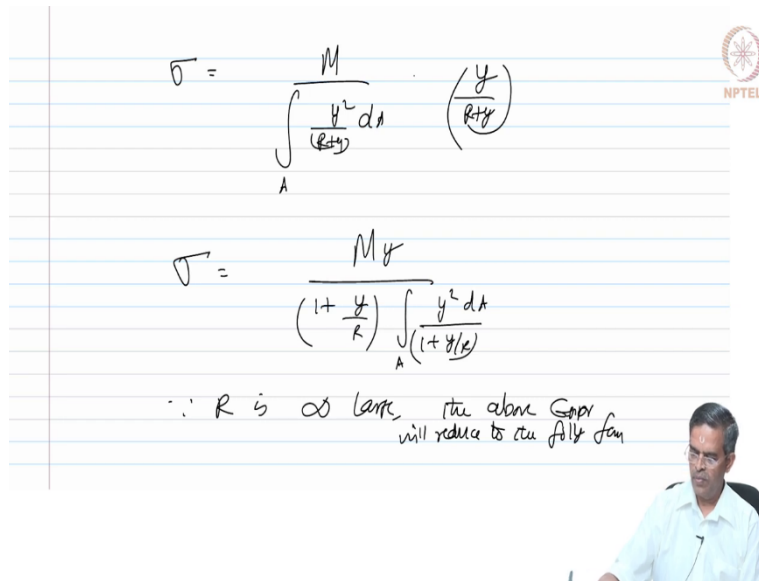 σ = M / ∫_A y²/(R+y) dA · (y/(R+y))
NPTEL
σ = My / (1 + y/R) ∫_A y² dA/(1 + y/R)
∵ R is ∞ large, the above Expr
will reduce to the folly form